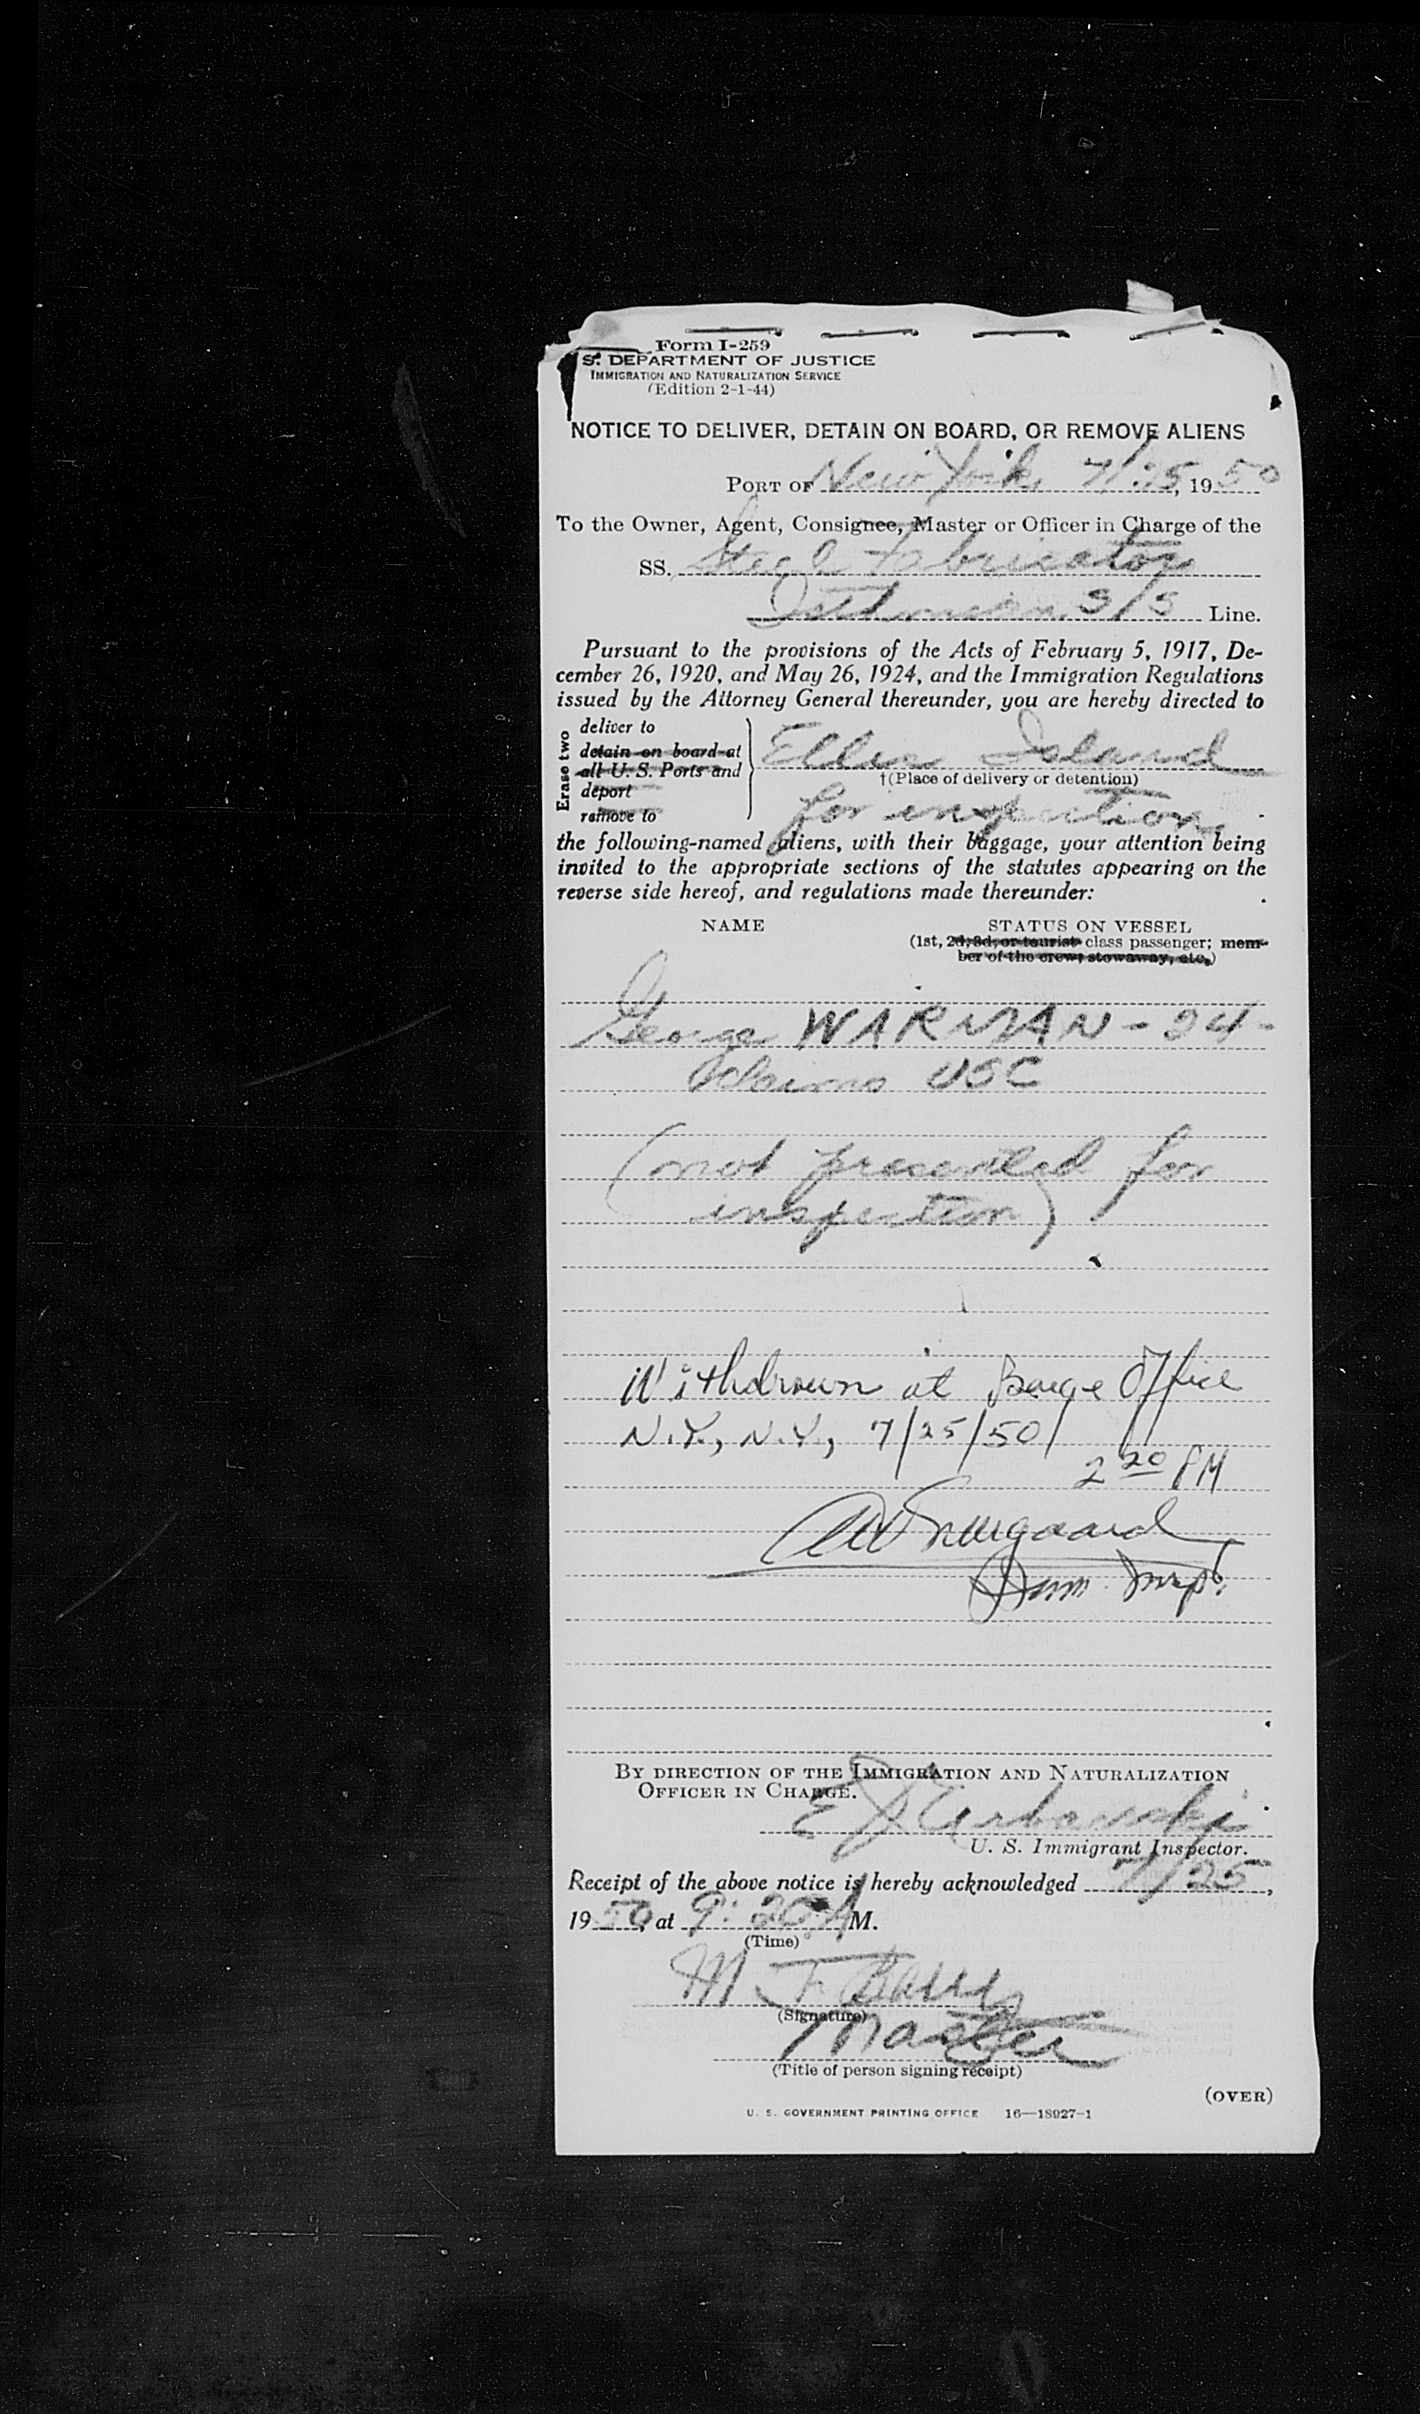 Form I-259
S. DEPARTMENT OF JUSTICE
IMMIGRATION AND NATURALIZATION SERVICE
(Edition 2-1-44)
NOTICE TO DELIVER, DETAIN ON BOARD, OR REMOVE ALIENS
PORT OF New York, 7/25, 1950
To the Owner, Agent, Consignee, Master or Officer in Charge of the
SS. Steel Fabricator
Isthmian S/S Line.
Pursuant to the provisions of the Acts of February 5, 1917, De-
cember 26, 1920, and May 26, 1924, and the Immigration Regulations
issued by the Attorney General thereunder, you are hereby directed to
Erase two
deliver to
detain on board at
all U. S. Ports and
deport
remove to
Ellis Island
†(Place of delivery or detention)
for inspection
the following-named aliens, with their baggage, your attention being
invited to the appropriate sections of the statutes appearing on the
reverse side hereof, and regulations made thereunder:
NAME STATUS ON VESSEL
(1st, 2d, 3d, or tourist class passenger; mem-
ber of the crew, stowaway, etc.)
George WARMAN - 24 -
Claims USC
(not presented for
inspection)
Withdrawn at Barge Office
N.Y., N.Y., 7/25/50
2 20 PM
Imm. Insp.
BY DIRECTION OF THE IMMIGRATION AND NATURALIZATION
OFFICER IN CHARGE.
E J Urbanski
U. S. Immigrant Inspector.
Receipt of the above notice is hereby acknowledged 7/25,
1950, at 9:20 A M.
(Time)
M F Barry
(Signature)
Master
(Title of person signing receipt)
(OVER)
U. S. GOVERNMENT PRINTING OFFICE 16—18927-1